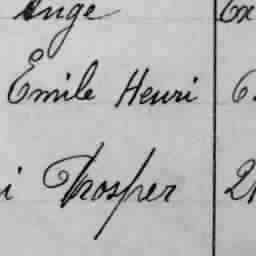 Ange Ex
Emile Henri 6.
i Prosper 21